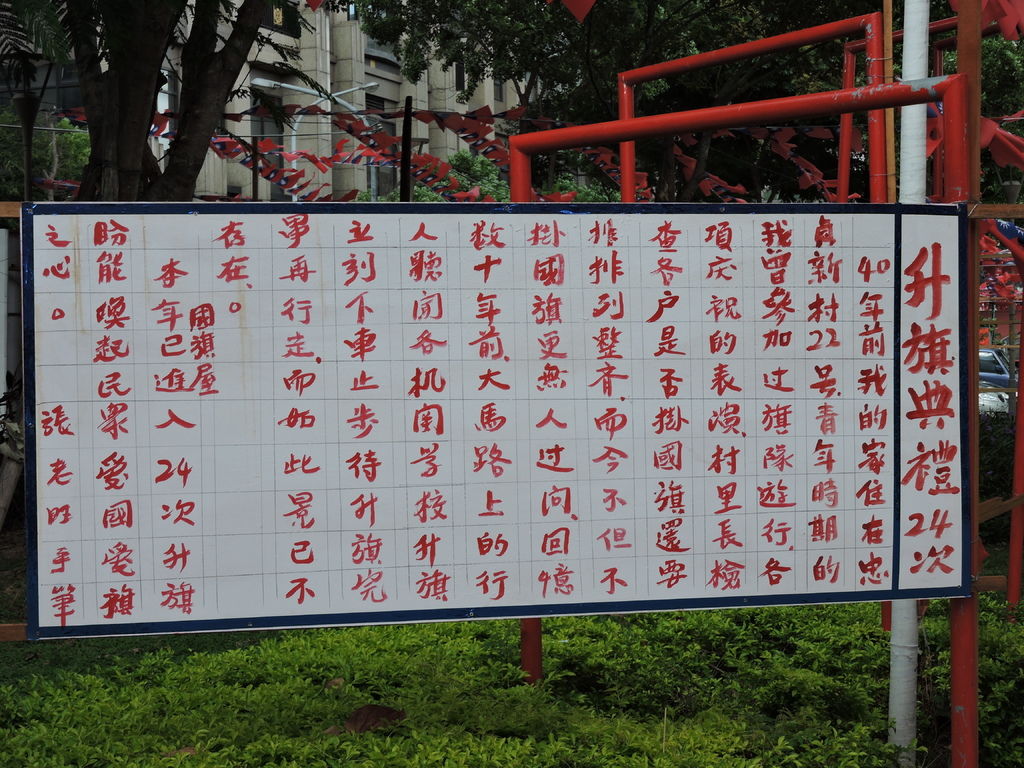 升旗典禮24次
40年前我的家住在忠
貞新村22号,青年時期的
我曾參加过旗隊遊行,各
項庆祝的表演,村里長檢
查各户是否掛國旗還要
排列整齐,而今不但不
掛國旗更無人过问,回憶
数十年前,大馬路上的行
人聽闻各机関学校升旗
立刻下車止步待升旗完
畢再行走,而如此景已不
存在。
國旗屋
李年已進入24次升旗
盼能喚起民眾愛國愛旗
之心。張老旺手筆